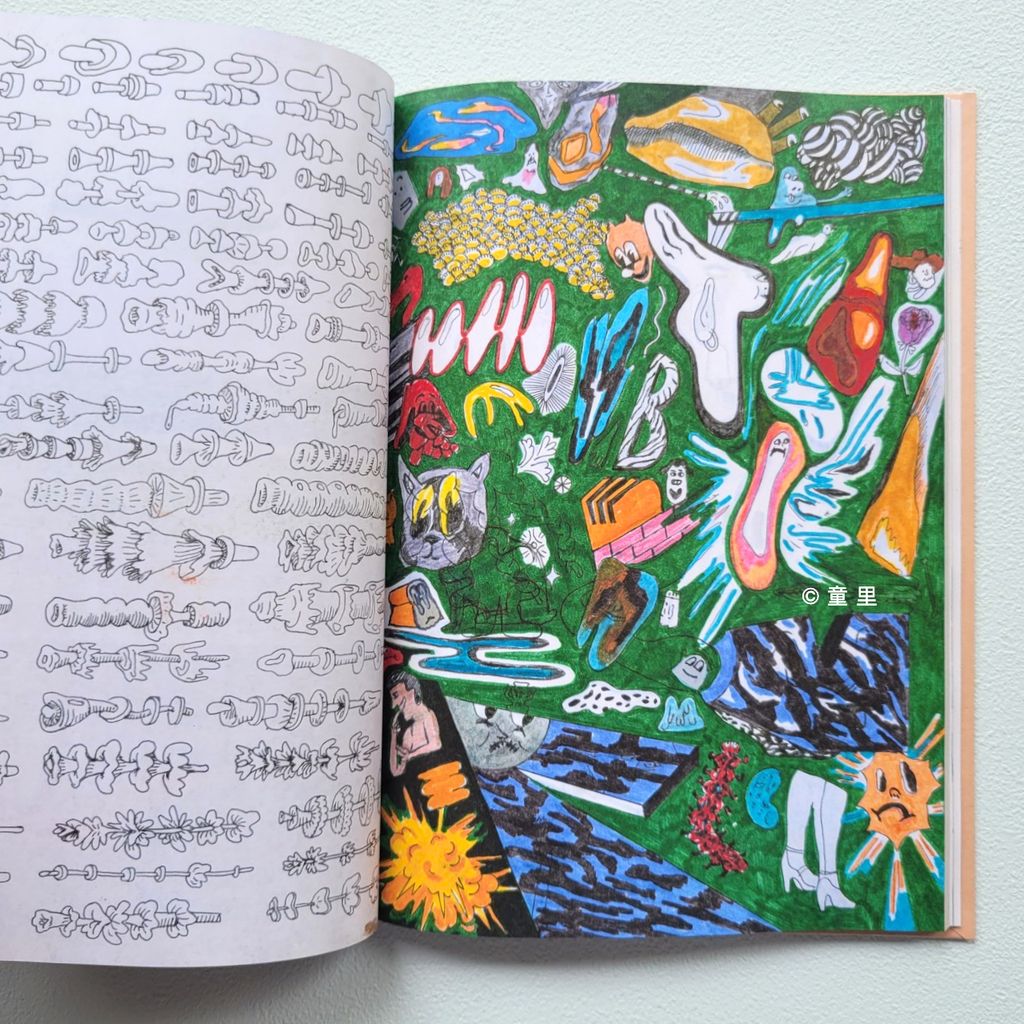 B
© 童里